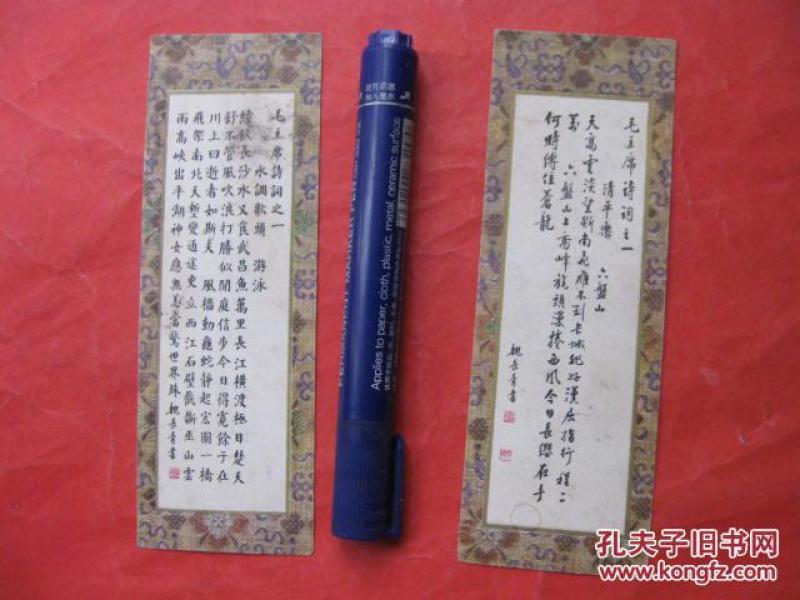 毛主席詩詞之一
水調歌頭 游泳
纔飲長沙水又食武昌魚萬里長江橫渡極目楚天
舒不管風吹浪打勝似閒庭信步今日得寬餘子在
川上曰逝者如斯夫 風檣動龜蛇靜起宏圖一橋
飛架南北天塹變通途更立西江石壁截斷巫山雲
雨高峽出平湖神女應無恙當驚世界殊 魏長青書
PERMANENT MARKER PEN
Applies to paper, cloth, plastic, metal, ceramic surface
毛主席詩詞之一
清平樂 六盤山
天高雲淡望斷南飛雁不到長城非好漢屈指行程二
萬 六盤山上高峰旄頭漫捲西風今日長纓在手
何時縛住蒼龍
魏長青書
孔夫子旧书网
www.kongfz.com